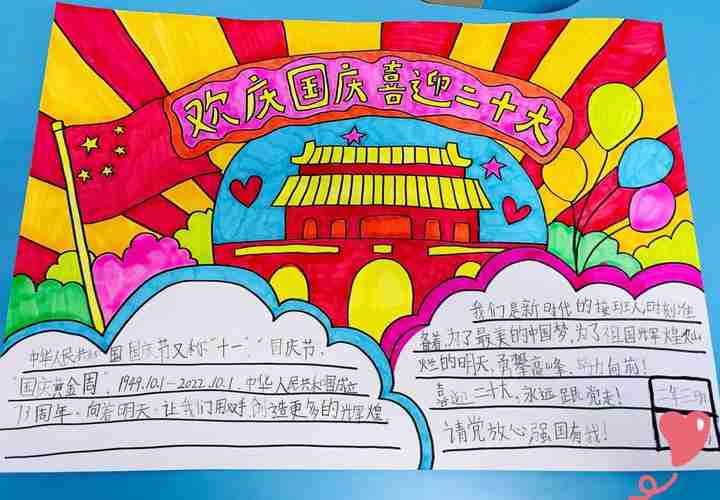 欢庆国庆喜迎二十大
中华人民共和国国庆节又称“十一”、“国庆节、
“国庆黄金周”.1949.10.1-2022.10.1.中华人民共和国成立
73周年。向着明天,让我们用双手创造更多的辉煌
我们是新时代的接班人,时刻准
备着,为了最美的中国梦,为了祖国辉煌灿
烂的明天,勇攀高峰、努力向前!
喜迎二十大,永远跟党走!
请党放心强国有我!
二年三班